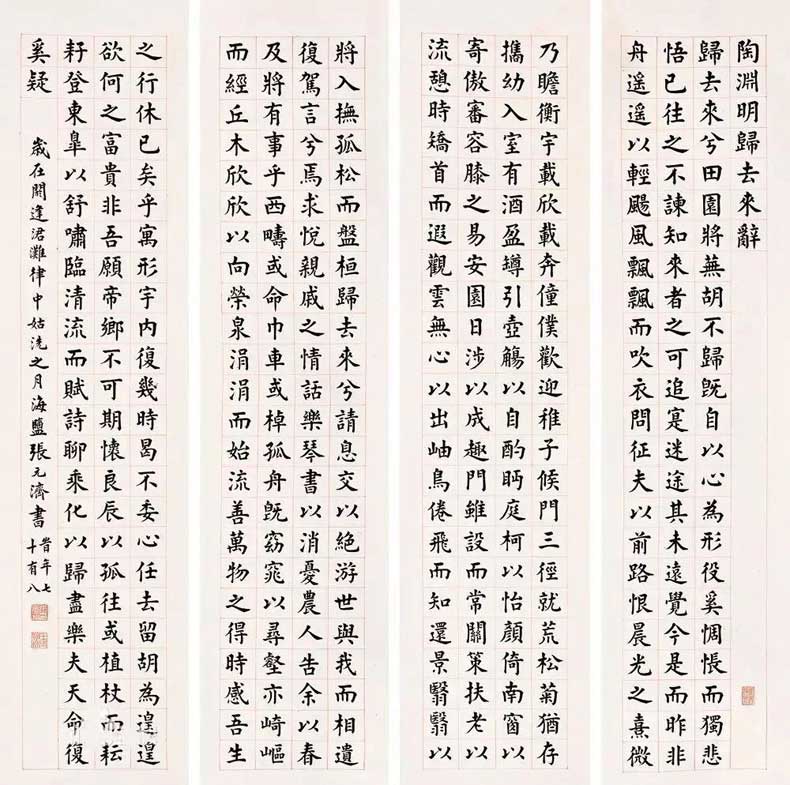 陶淵明歸去來辭
歸去來兮田園將蕪胡不歸既自以心為形役奚惆悵而獨悲
悟已往之不諫知來者之可追寔迷途其未遠覺今是而昨非
舟遙遙以輕颺風飄飄而吹衣問征夫以前路恨晨光之熹微
乃瞻衡宇載欣載奔僮僕歡迎稚子候門三徑就荒松菊猶存
攜幼入室有酒盈罇引壺觴以自酌眄庭柯以怡顏倚南窗以
寄傲審容膝之易安園日涉以成趣門雖設而常關策扶老以
流憩時矯首而遐觀雲無心以出岫鳥倦飛而知還景翳翳以
將入撫孤松而盤桓歸去來兮請息交以絕游世與我而相遺
復駕言兮焉求悅親戚之情話樂琴書以消憂農人告余以春
及將有事乎西疇或命巾車或棹孤舟既窈窕以尋壑亦崎嶇
而經丘木欣欣以向榮泉涓涓而始流善萬物之得時感吾生
之行休已矣乎寓形宇內復幾時曷不委心任去留胡為遑遑
欲何之富貴非吾願帝鄉不可期懷良辰以孤往或植杖而耘
耔登東皋以舒嘯臨清流而賦詩聊乘化以歸盡樂夫天命復
奚疑
歲在閼逢涒灘律中姑洗之月海鹽張元濟書
旹年七
十有八